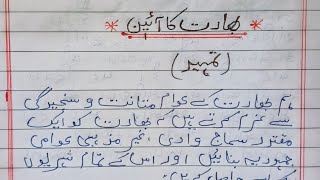 بھارت کا آئین
(تمہید)
ہم بھارت کے عوام متانت و سنجیدگی
سے عزم کرتے ہیں کہ بھارت کو ایک
مقتدر سماج وادی، غیر مذہبی عوامی
جمہوریہ بنائیں اور اس کے تمام شہریوں